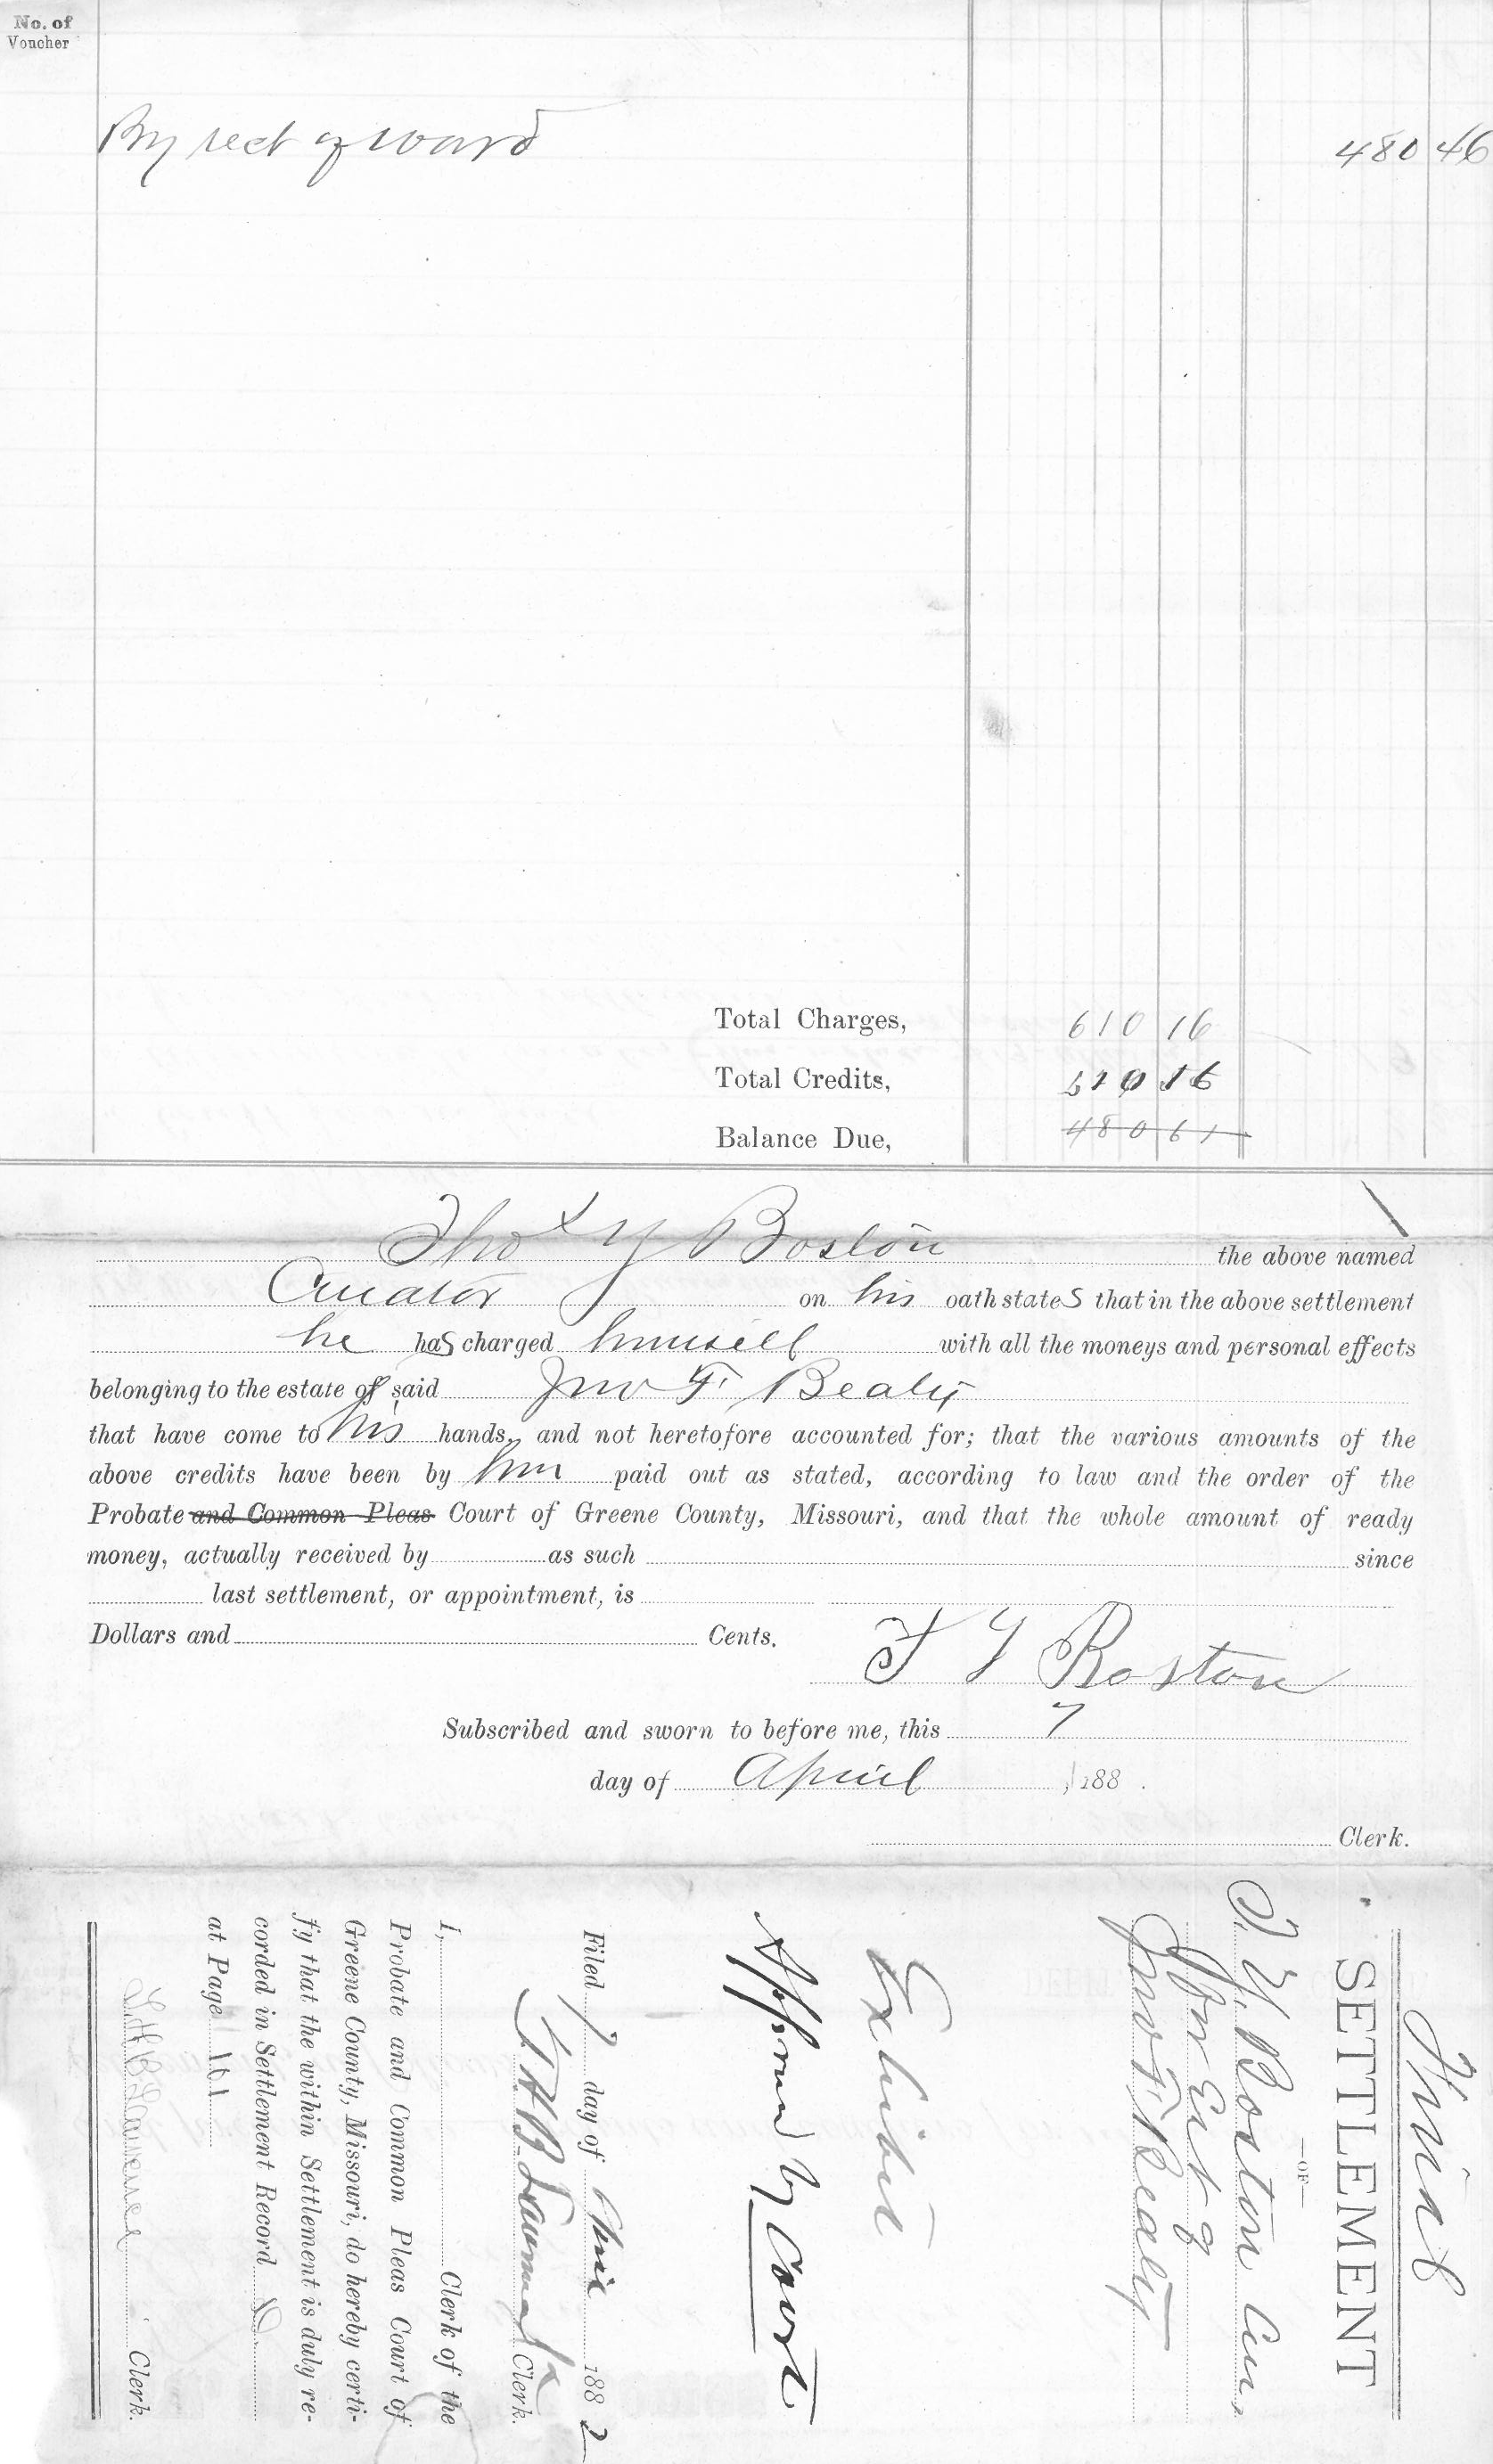 No. of
Voucher
By rect of ward 480 46
Total Charges, 610 16
Total Credits, 610 16
Balance Due, 480 61
Thos Y Boston the above named
Curator on his oath states that in the above settlement
he has charged himself with all the moneys and personal effects
belonging to the estate of said Jno F. Bealy
that have come to his hands, and not heretofore accounted for; that the various amounts of the
above credits have been by him paid out as stated, according to law and the order of the
Probate and Common Pleas Court of Greene County, Missouri, and that the whole amount of ready
money, actually received by as such since
last settlement, or appointment, is
Dollars and Cents.
T Y Boston
Subscribed and sworn to before me, this 7
day of April , 188 .
Clerk.
Final
SETTLEMENT
—OF—
T. Y. Boston Cur,
of Est of
Jno F. Bealy
Exhibit
Approved by Court
Filed 7 day of April 1882
Clerk.
I, Clerk of the
Probate and Common Pleas Court of
Greene County, Missouri, do hereby certi-
fy that the within Settlement is duly re-
corded in Settlement Record D.
at Page 161
Clerk.